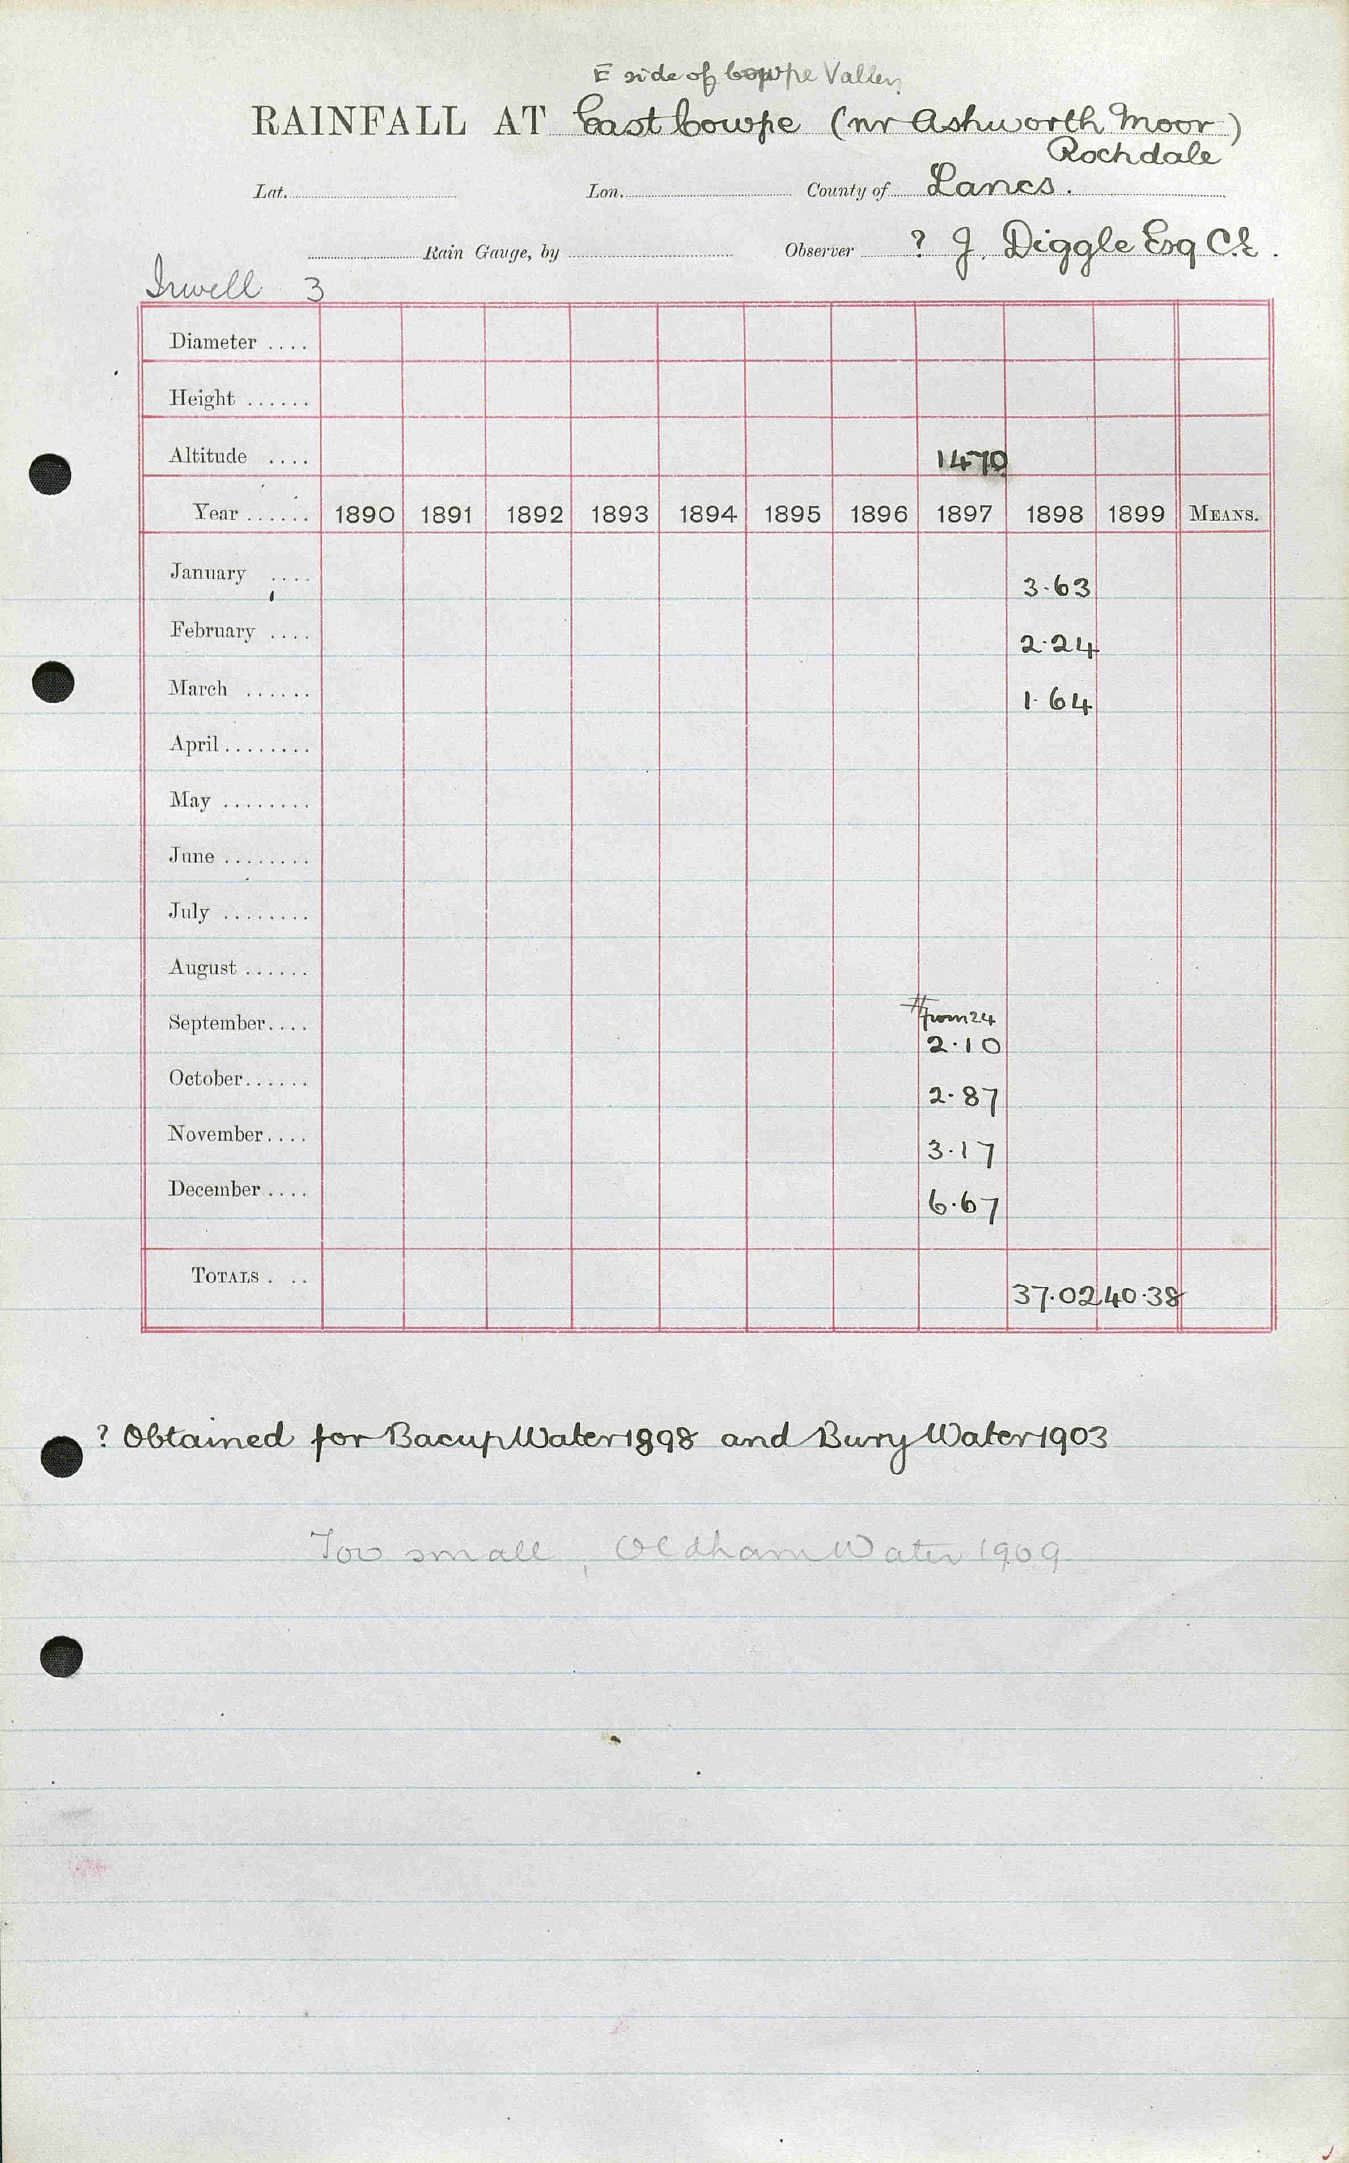 E side of Cowpe Valley
RAINFALL AT East Cowpe (nr Ashworth Moor)
Rochdale
Lat. Lon. County of Lancs.
Rain Gauge, by Observer ? J. Diggle Esq C.E.
Irwell 3
Diameter ....
Height ......
Altitude .... 1470
Year ...... 1890 1891 1892 1893 1894 1895 1896 1897 1898 1899 MEANS.
January .... 3.63
February .... 2.24
March ...... 1.64
April ........
May ........
June ........
July ........
August ......
# from 24
September.... 2.10
October...... 2.87
November.... 3.17
December .... 6.67
TOTALS . .. 37.02 40.38
? Obtained for Bacup Water 1898 and Bury Water 1903
Too small, Oldham Water 1909